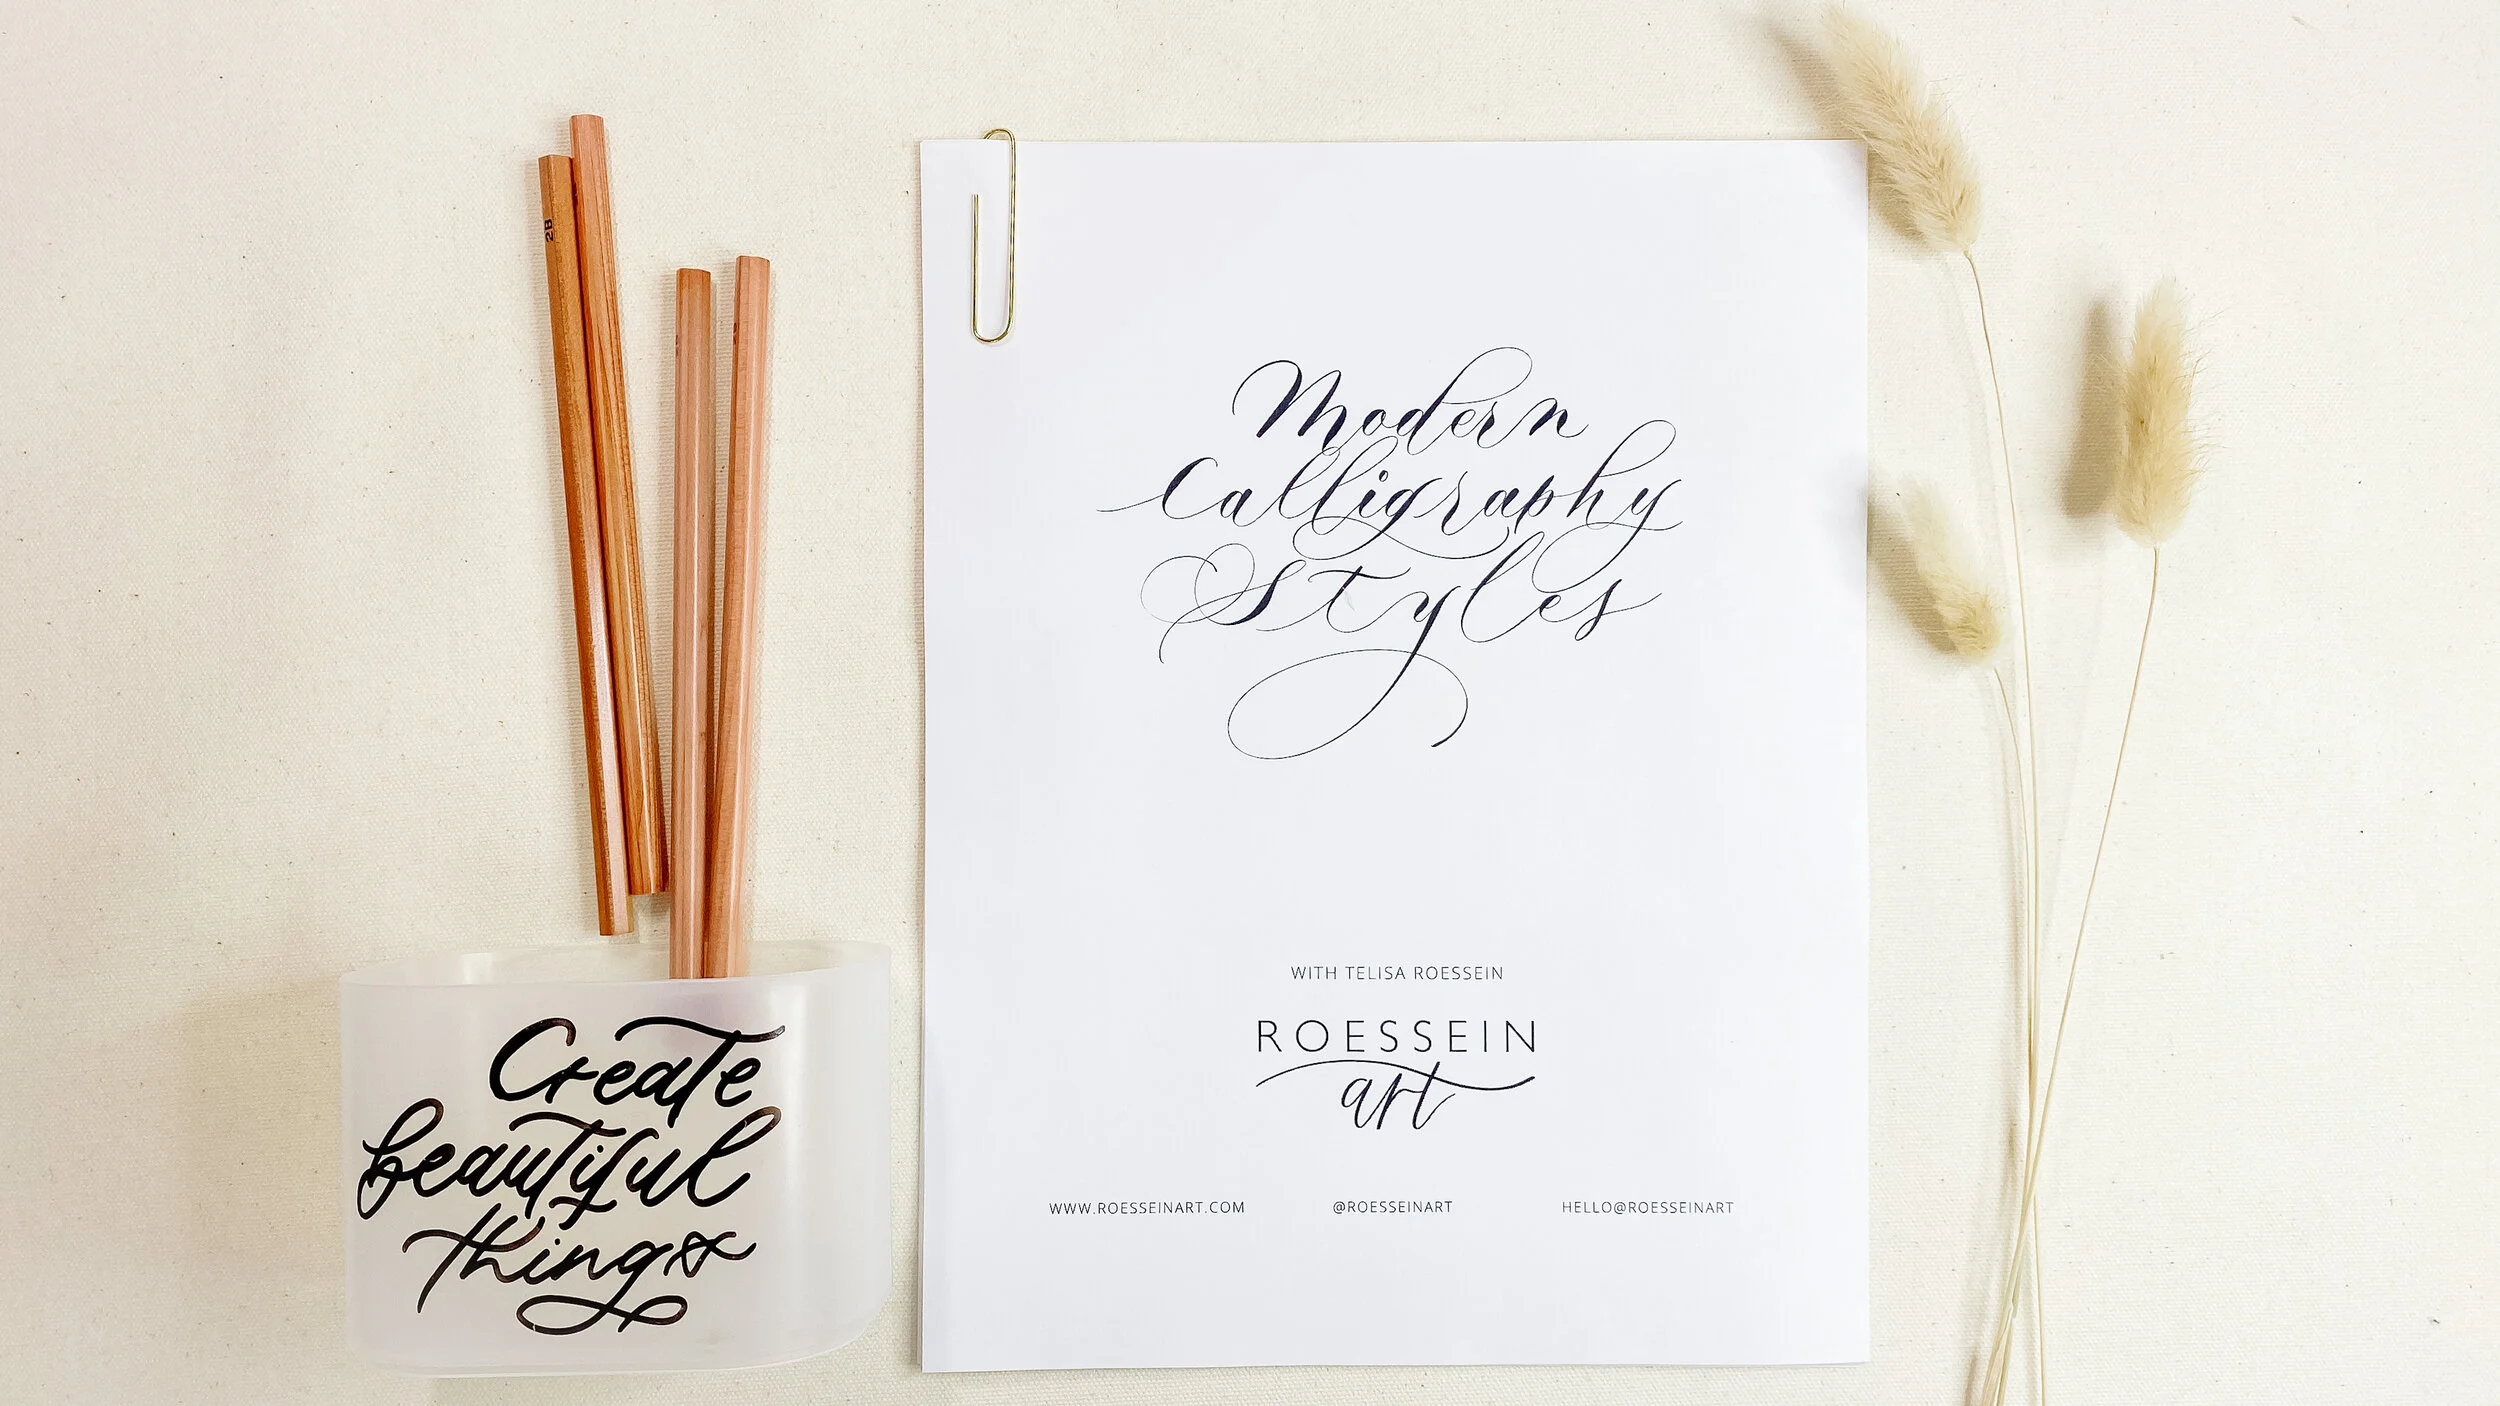 2B
Create
beautiful
things
Modern
Calligraphy
Styles
WITH TELISA ROESSEIN
ROESSEIN
art
WWW.ROESSEINART.COM @ROESSEINART HELLO@ROESSEINART